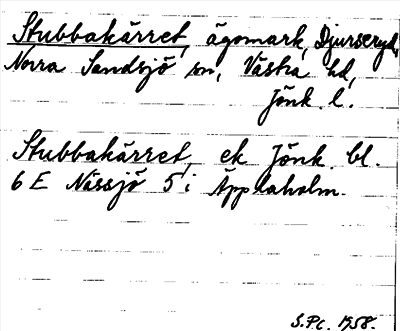 Stubbakärret, ägomark, Djurseryd,
Norra Sandsjö sn, Västra hd,
Jönk. l.
Stubbakärret, ek Jönk. bl.
6 E Nässjö 5 i Äpplaholm.
S.P.C. 1958.